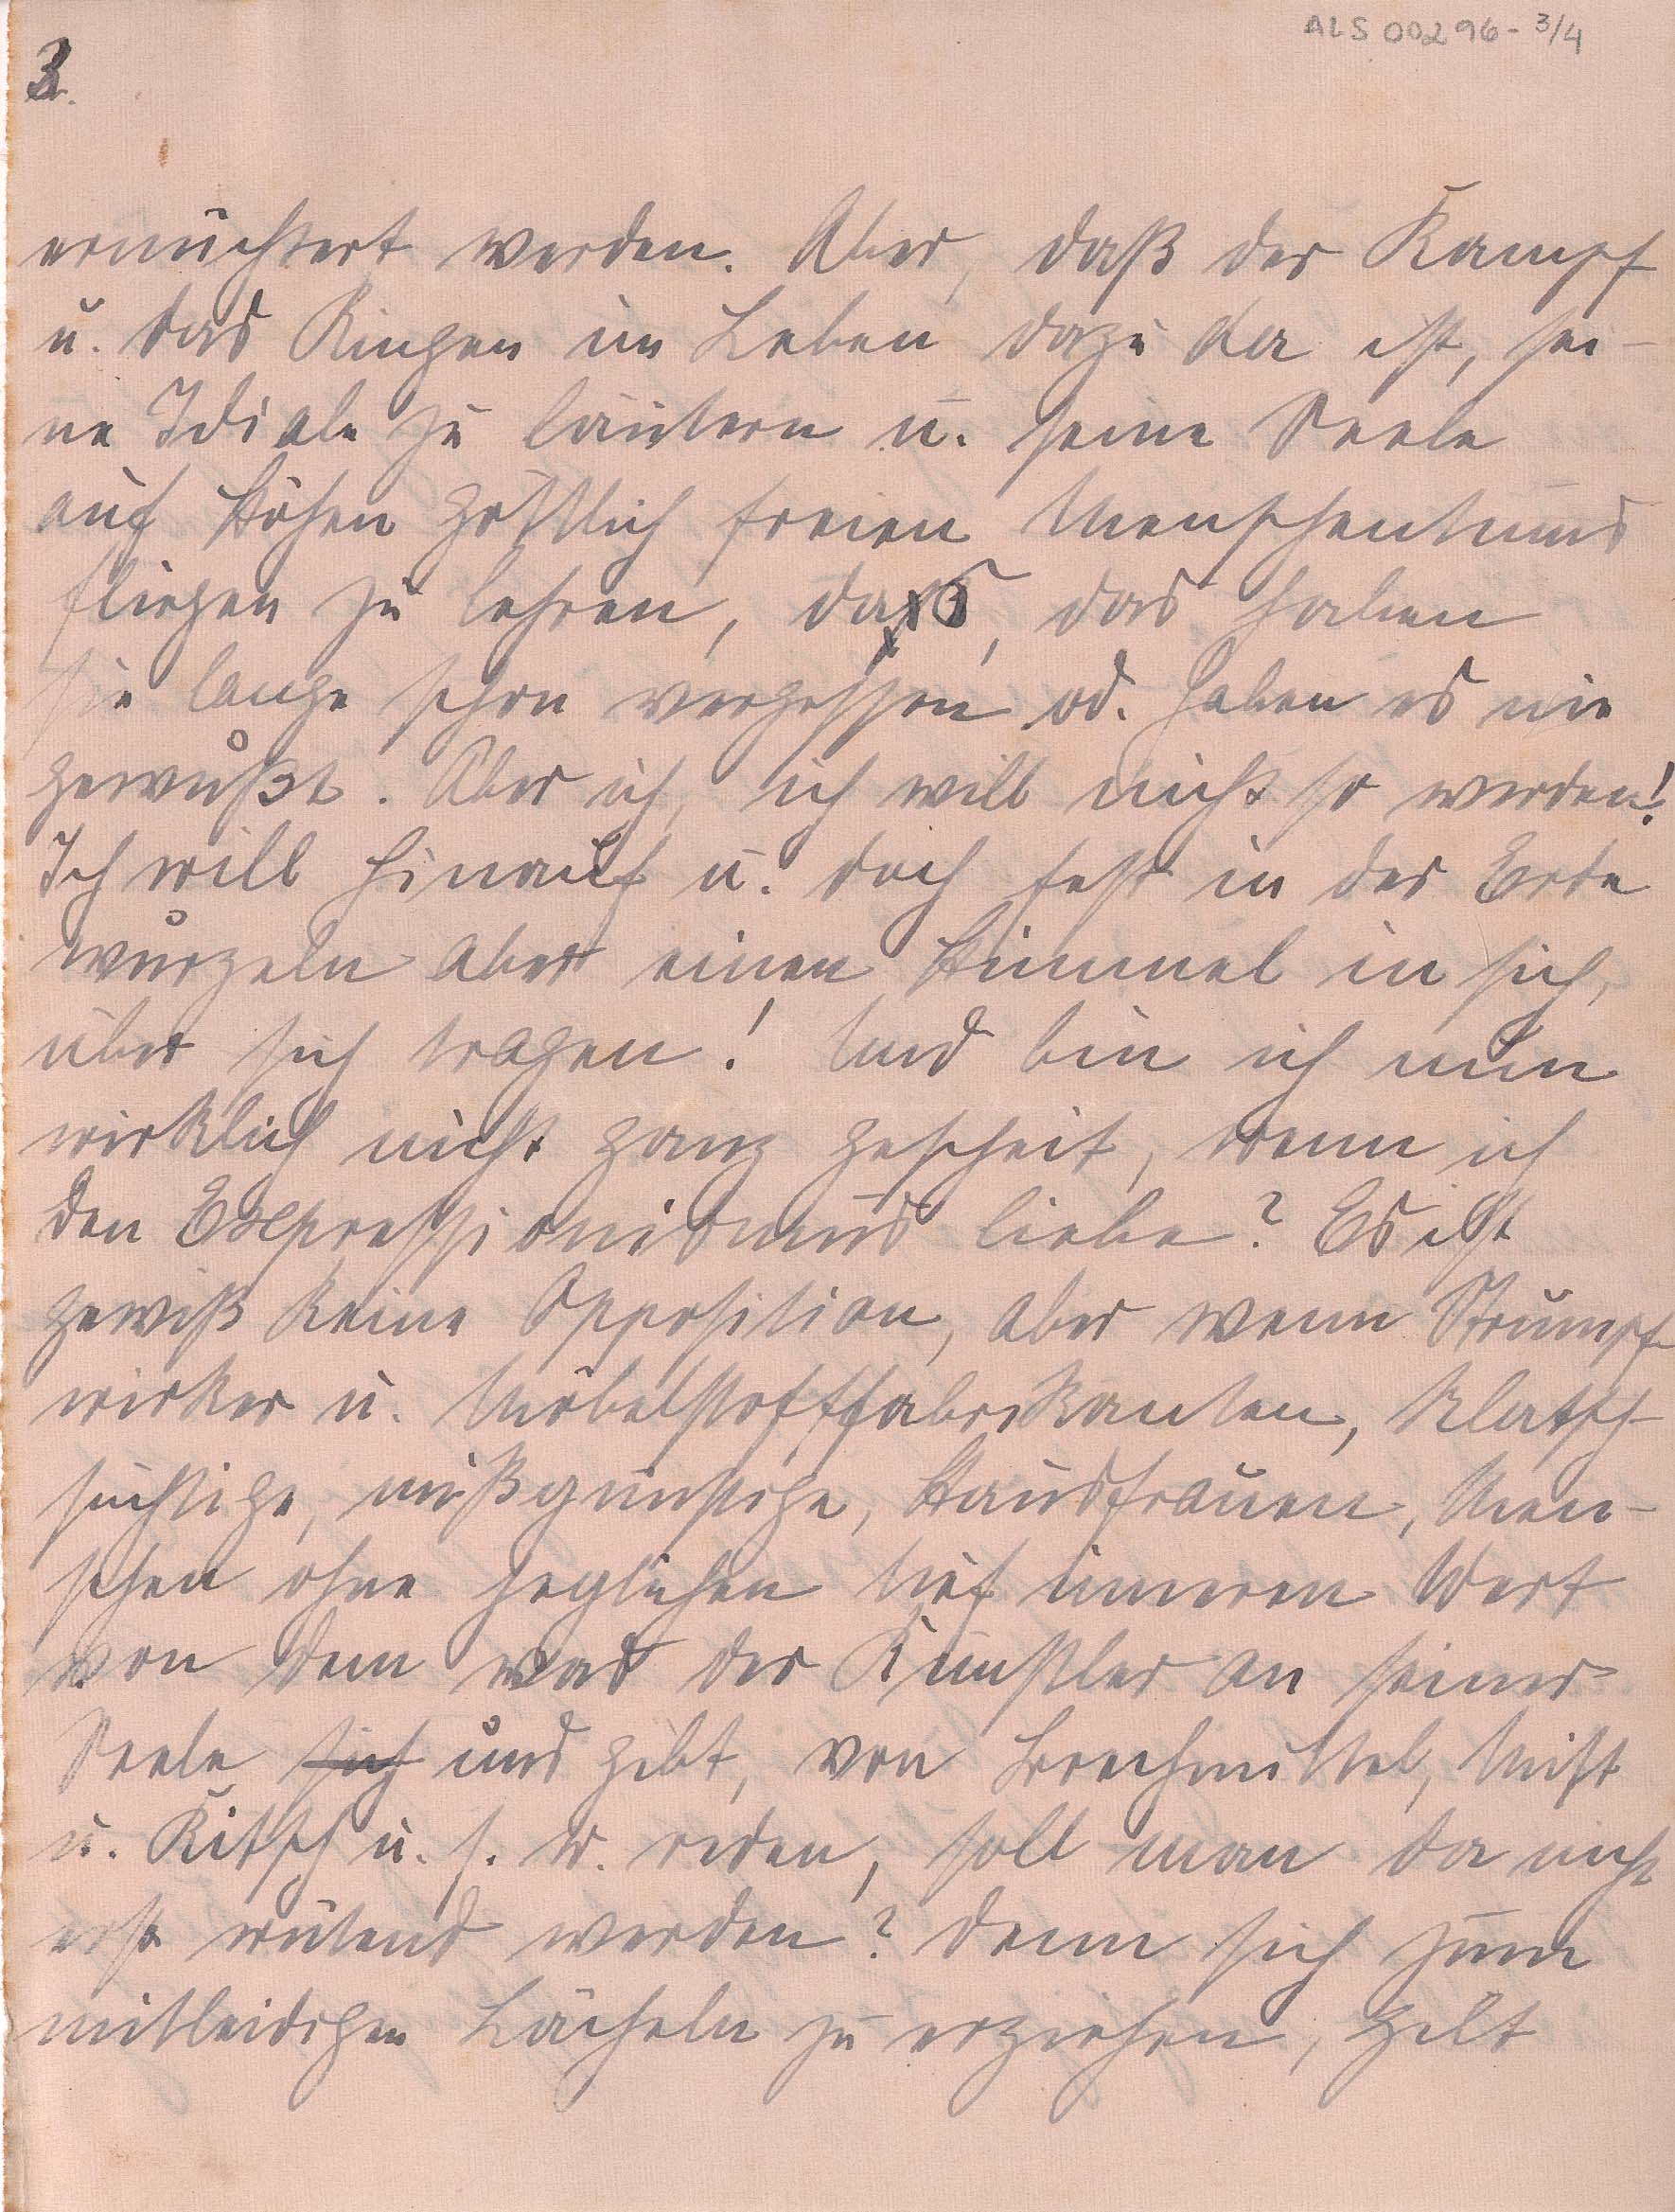 ALS 00296-3/4
3.
ernüchtert werden. Aber, daß der Kampf
u. das Ringen im Leben dazu da ist, sei-
ne Ideale zu läutern u. seine Seele
auf Höhen göttlich freien Menschentums
fliegen zu lehren, daß, das haben
sie lange schon vergessen od. haben es nie
gewußt. Aber ich, ich will nicht so werden!
Ich will hinauf u. doch fest in der Erde
wurzeln aber einen Himmel in sich,
über sich tragen! Und bin ich nun
wirklich nicht ganz gescheit, wenn ich
den Expressionismus liebe? Es ist
gewiß keine Opposition, aber wenn Strumpf-
wirker u. Möbelstofffabrikanten, Klatsch-
süchtige, mißgünstige, Hausfrauen, Men-
schen ohne jeglichen tief inneren Wert
von dem was der Künstler an seiner
Seele sich uns gibt, von Brechmittel, Mist
u. Kitsch u. s. w. reden, soll man da nicht
erst wütend werden? Denn sich zum
mitleidigen Lächeln zu erziehen, gilt